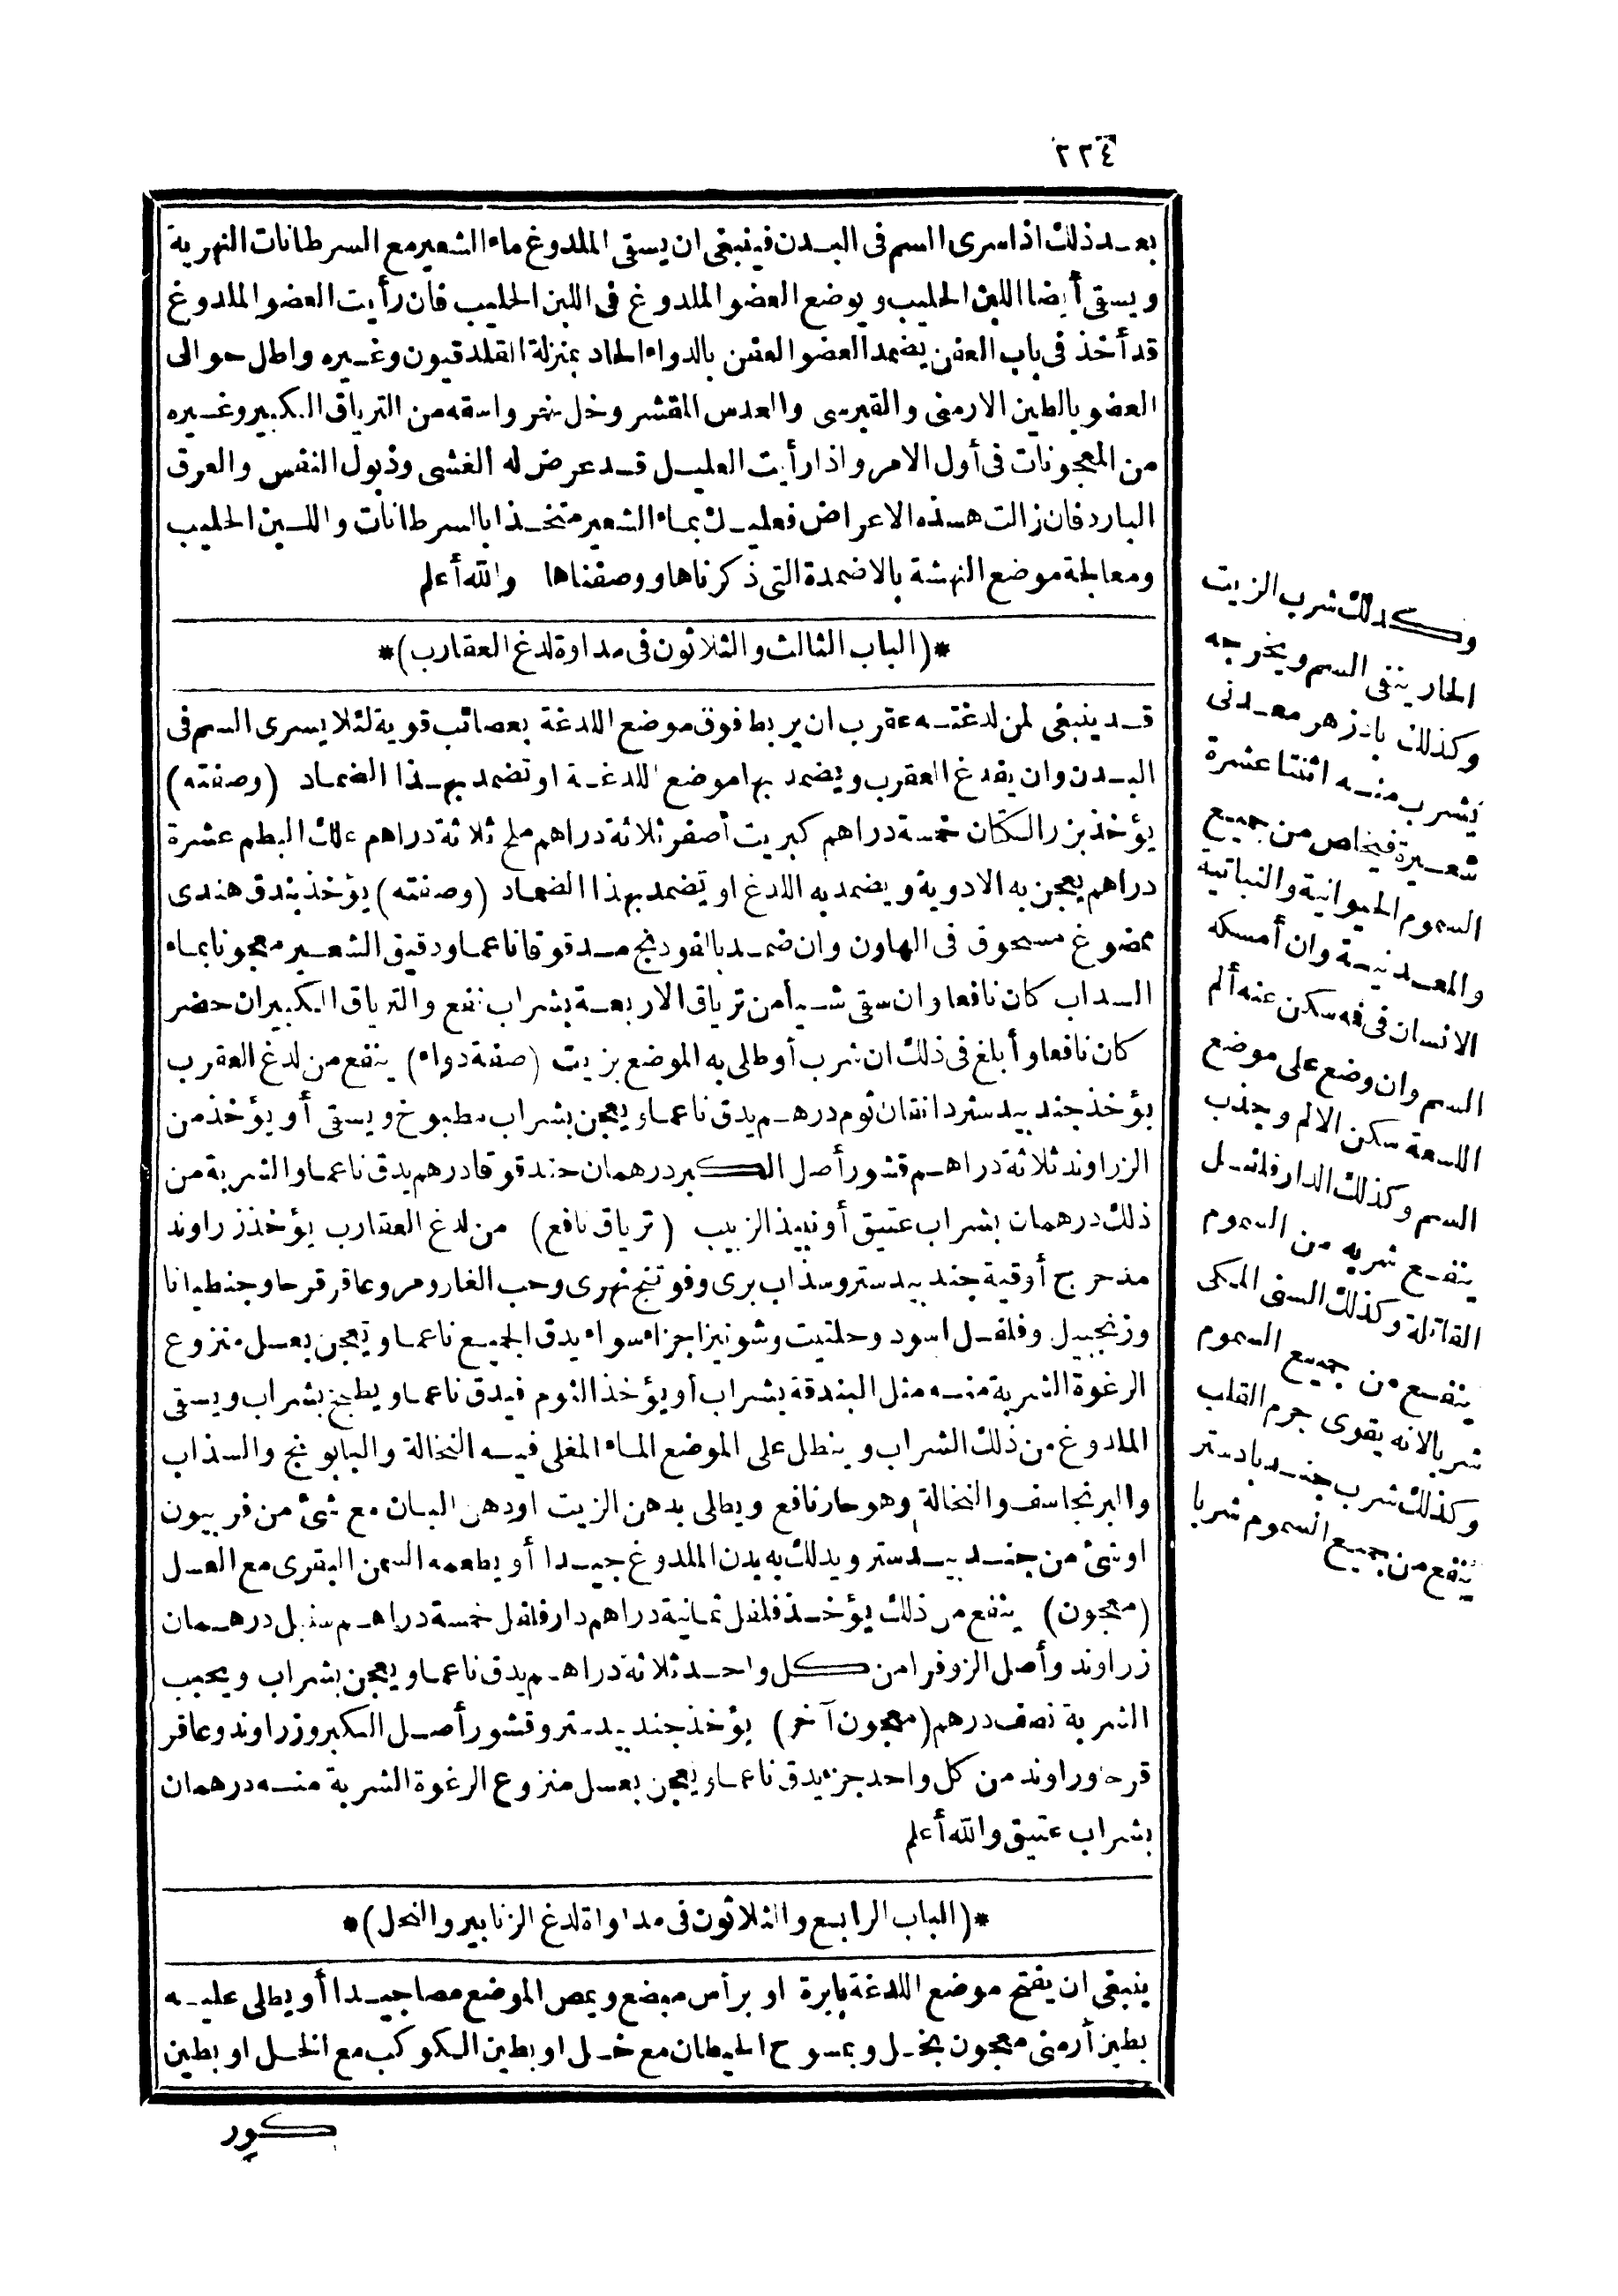 ٢٢٤
بعد ذلك اذا سرى السم فى البدن فينبغى ان يسقى الملدوغ ماء الشعير مع السرطانات النهرية
ويسقى أيضا اللبن الحليب ويوضع العضو الملدوغ فى اللبن الحليب فان رأيت العضو الملدوغ
قد أخذ فى باب العفن يضمد العضو العفن بالدواء الحاد بمنزلة القلدقيون وغيره واطل حوالى
العضو بالطين الارمنى والقبرسى والعدس المقشر وخل خمر واسقه من الترياق الكبير وغيره
من المعجونات فى أول الامر واذا رأيت العليل قد عرض له الغشى وذبول النفس والعرق
البارد فان زالت هذه الاعراض فعليك بماء الشعير متخذا بالسرطانات واللبن الحليب
ومعالجة موضع النهشة بالاضمدة التى ذكرناها ووصفناها والله أعلم
*(الباب الثالث والثلاثون فى مداوة لدغ العقارب)*
قد ينبغى لمن لدغته عقرب ان يربط فوق موضع اللدغة بعصائب قوية لئلا يسرى السم فى
البدن وان يفدغ العقرب ويضمد بها موضع اللدغة او تضمد بهذا الضماد (وصفته)
يؤخذ بزر الكتان خمسة دراهم كبريت أصفر ثلاثة دراهم ملح ثلاثة دراهم علك البطم عشرة
دراهم يعجن به الادوية ويضمد به اللدغ او تضمد بهذا الضماد (وصفته) يؤخذ بندق هندى
ممضوغ مسحوق فى الهاون وان ضمد بالفودنج مدقوقا ناعما ودقيق الشعير معجونا بماء
السداب كان نافعا وان سقى شيأ من ترياق الاربعة بشراب نفع والترياق الكبير ان حضر
كان نافعا وأبلغ فى ذلك ان شرب أو طلى به الموضع بزيت (صفة دواء) ينفع من لدغ العقرب
يؤخذ جندبيدستر دانقان ثوم درهم يدق ناعما ويعجن بشراب مطبوخ ويسقى أو يؤخذ من
الزراوند ثلاثة دراهم قشور أصل الكبر درهمان حندقوقا درهم يدق ناعما والشربة من
ذلك درهمان بشراب عتيق أو نبيذ الزبيب (ترياق نافع) من لدغ العقارب يؤخذ زراوند
مدحرج أوقية جندبيدستر وسذاب برى وفوتنج نهرى وحب الغار ومر وعاقر قرحا وجنطيانا
وزنجبيل وفلفل اسود وحلتيت وشونيز اجزاء سواء يدق الجميع ناعما ويعجن بعسل منزوع
الرغوة الشربة منه مثل البندقة بشراب أو يؤخذ الثوم فيدق ناعما ويطبخ بشراب ويسقى
الملدوغ من ذلك الشراب وينطل على الموضع الماء المغلى فيه النخالة والبابونج والسذاب
والبرنجاسف والنخالة وهو حار نافع ويطلى بدهن الزيت اودهن البان مع شئ من فربيون
او شئ من جندبيدستر ويدلك به بدن الملدوغ جيدا أو يطعمه السمن البقرى مع العسل
(معجون) ينفع من ذلك يؤخذ فلفل ثمانية دراهم دار فلفل خمسة دراهم سنبل درهمان
زراوند وأصل الزوفرا من كل واحد ثلاثة دراهم يدق ناعما ويعجن بشراب ويحبب
الشربة نصف درهم (معجون آخر) يؤخذ جندبيدستر وقشور أصل الكبر وزراوند وعاقر
قرحا وراوند من كل واحد جزء يدق ناعما ويعجن بعسل منزوع الرغوة الشربة منه درهمان
بشراب عتيق والله أعلم
*(الباب الرابع والثلاثون فى مداواة لدغ الزنابير والنحل)*
ينبغى ان يفتح موضع اللدغة بابرة او برأس مبضع ويمص الموضع مصا جيدا أو يطلى عليه
بطين أرمنى معجون بخل وبمسوح الحيطان مع خل او بطين الكوكب مع الخل او بطين
كور
وكذلك شرب الزيت
الحار ينفى السم ويخرجه
وكذلك بادزهر معدنى
يشرب منه اثنتا عشرة
شعيرة فيخلص من جميع
السموم الحيوانية والنباتية
والمعدنية وان أمسكه
الانسان فى فه سكن عنه ألم
السم وان وضع على موضع
اللسعة سكن الالم وجذب
السم وكذلك الدار فلفل
ينفع شربه من السموم
القاتلة وكذلك السنى المكى
ينفع من جميع السموم
شربا لانه يقوى جرم القلب
وكذلك شرب جندبادستر
ينفع من جميع السموم شربا